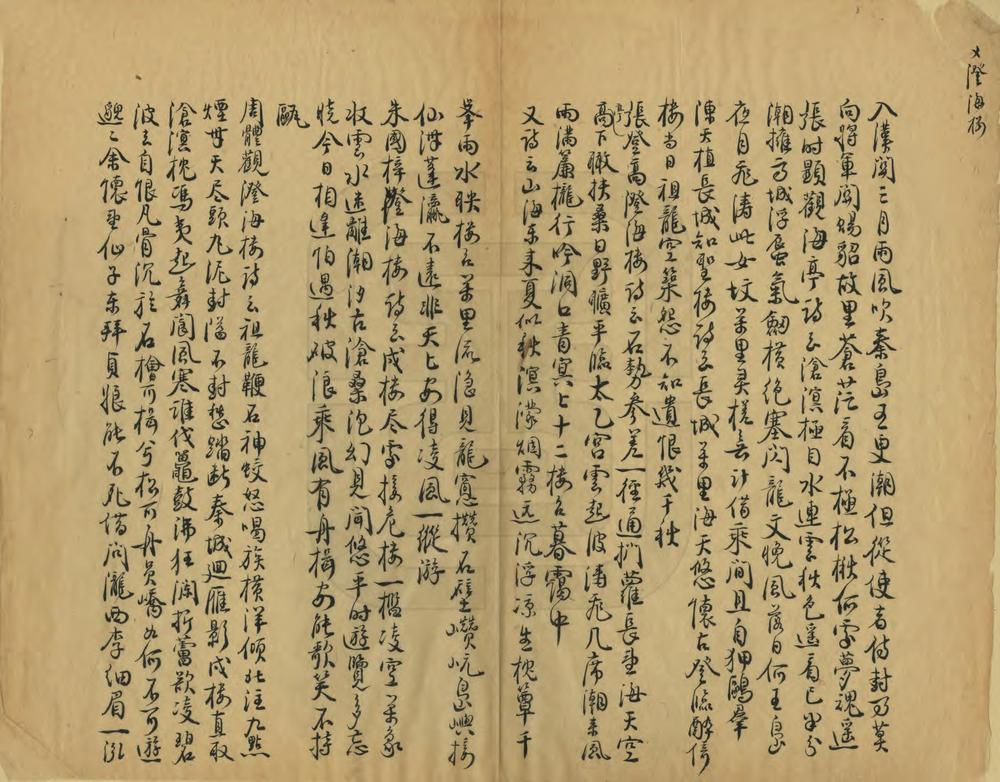 澄海楼
入漢關三月雨風吹秦島五更潮但從使者待封
向將軍闕賜貂故里蒼茫看不極松楸何處夢魂遥
張時顯觀海亭詩云滄溟極目水連雲秋色遥看已半分
潮擁高城浮蜃氣劍橫絕塞閃龍文晚風落日何王島
夜月飛濤此女坟萬里灵槎去计借乘间且自狎鷗羣
陳天植長城知聖樓詩云長城萬里海天悠懷古登臨醉倚
樓当日祖龍空築怨不知遺恨幾千秋
張登高澄海楼詩云石勢参差一徑通捫蘿長望海天空
高下瞰扶桑日野曠平臨太乙宮雲起波濤飛几席潮来風
雨满簾櫳行吟洞口青冥上十二楼台暮靄中
又詩云山海东来夏似秋溟濛烟霧远沉浮凉生枕簟千
峯雨水映楼台萬里流隐見龍窻攢石壁巑岏島嶼接
仙洲蓬瀛不遠非天上安得凌風一縱游
朱國梓澄海楼詩云戍楼尽處接危楼一檻凌空萬象
收雲水迷離潮汐古滄桑泡幻見聞悠平时遊覽多忘
曉今日相逢怕遇秋破浪乘風有舟楫安能歌笑不持
甌
周體觀澄海楼詩云祖龍鞭石神蛟怒喝族橫洋倾北注九點
煙母天尽頭九泥封海不封愁踏断秦城迴雁影戍楼直取
滄溟枕馮夷起舞闔風寒谁伐鼉鼓沸狂瀾折蘆欲凌碧
波去自恨凡骨沉於石檜可楫兮松可舟員嶠如何不可遊
邈邈余懷望仙子东拜貞娘能不死借问隴西李細眉一泓